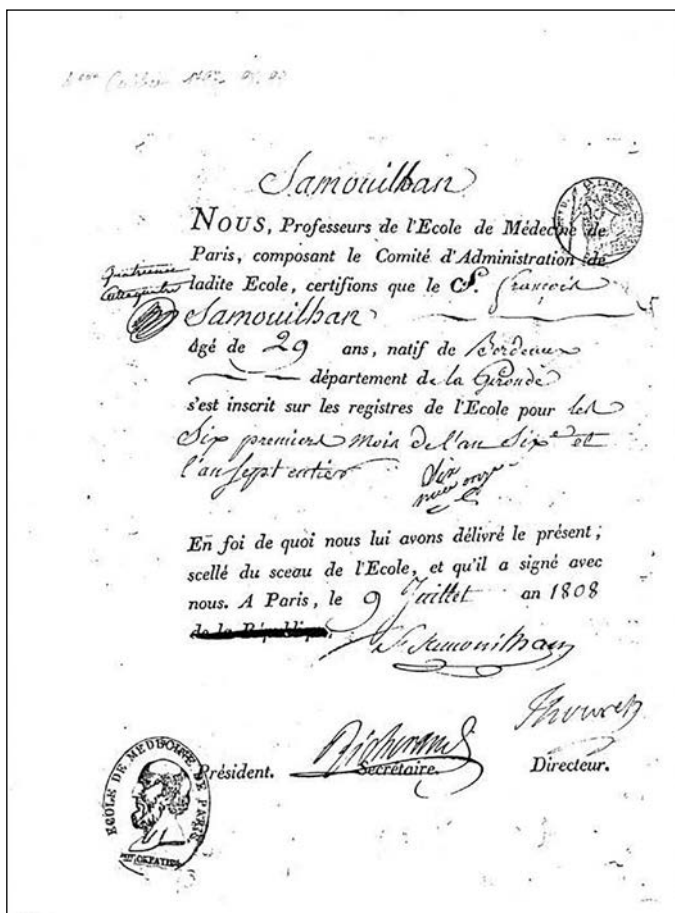 Samouilhan
NOUS, Professeurs de l'Ecole de Médecine de
Paris, composant le Comité d'Administration de
ladite Ecole, certifions que le C. S. françois
Samouilhan
âgé de 29 ans, natif de Bordeaux
département de la Gironde
s'est inscrit sur les registres de l'Ecole pour les
Six premiers mois de l'an Six et
l'an Sept entier
En foi de quoi nous lui avons délivré le présent ;
scellé du sceau de l'Ecole, et qu'il a signé avec
nous. A Paris, le 9 Juillet an 1808
de la République.
Samouilhan
Richerand
Thouret
Président. Secrétaire. Directeur.
ECOLE DE MEDECINE DE PARIS